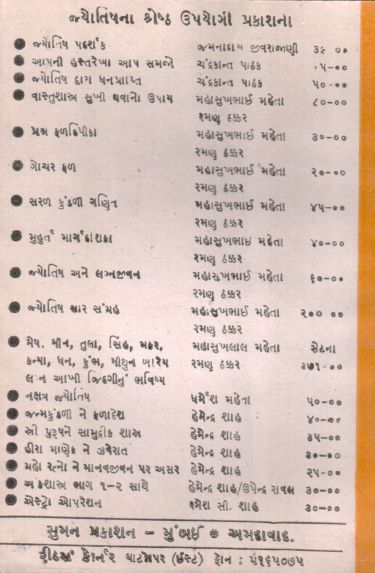 જ્યોતિષના શ્રેષ્ઠ ઉપયોગી પ્રકાશનો
જ્યોતિષ પદર્શક જમનાદાસ જીવરાજાણી ૩૬ ૦૦
આપની હસ્તરેખા આપ સમજો ચંદ્રકાન્ત પાઠક ૧૫-૦૦
જ્યોતિષ દ્વારા ધનપ્રાપ્તિ ચંદ્રકાન્ત પાઠક ૫૦-૦૦
વાસ્તુશાસ્ત્ર સુખી થવાનો ઉપાય મહાસુખભાઈ મહેતા ૮૦-૦૦
રમણુ ઠક્કર
પ્રશ્ન ફળદિપીકા મહાસુખભાઈ મહેતા ૩૦-૦૦
રમણુ ઠક્કર
ગોચર ફળ મહાસુખભાઈ મહેતા ૨૦-૦૦
રમણુ ઠક્કર
સરળ કુંડળી ગણિત મહાસુખભાઈ મહેતા ૪૫-૦૦
રમણુ ઠક્કર
મુહુર્ત માર્ગદર્શિકા મહાસુખભાઈ મહેતા ૪૦-૦૦
રમણુ ઠક્કર
જ્યોતિષ અને લગ્નજીવન મહાસુખભાઈ મહેતા ૬૦-૦૦
રમણુ ઠક્કર
જ્યોતિષ સાર સંગ્રહ મહાસુખભાઈ મહેતા ૨૦૦ ૦૦
રમણુ ઠક્કર
મેષ, મીન, તુલા, સિંહ, મકર, મહાસુખલાલ મહેતા સેટના
કન્યા, ધન, કુંભ, મીથુન બારેય રમણુ ઠક્કર ૩૭૧-૦૦
લગ્ન આખી જિંદગીનું ભવિષ્ય
નક્ષત્ર જ્યોતિષ ધર્મેશ મહેતા ૫૦-૦૦
જન્મકુંડળી ને ફળાદેશ હેમેન્દ્ર શાહ ૪૦-૦૦
સ્ત્રી પુરૂષને સામુદ્રીક શાસ્ત્ર હેમેન્દ્ર શાહ ૩૫-૦૦
હીરા માણેક ને ઝવેરાત હેમેન્દ્ર શાહ ૩૦-૦૦
મહા રત્નો ને માનવજીવન પર અસર હેમેન્દ્ર શાહ ૨૫-૦૦
અંકશાસ્ત્ર ભાગ ૧-૨ સાથે હેમેન્દ્ર શાહ/ઉપેન્દ્ર રાવલ ૩૦-૦૦
એસ્ટ્રો ઓપરેશન રમેશ સી. શાહ ૩૦-૦૦
સુમન પ્રકાશન - મુંબઈ ● અમદાવાદ.
રીઠજી કોર્નર ઘાટકોપર (ઈસ્ટ) ફોન : ૫૧૬૫૦૭૫